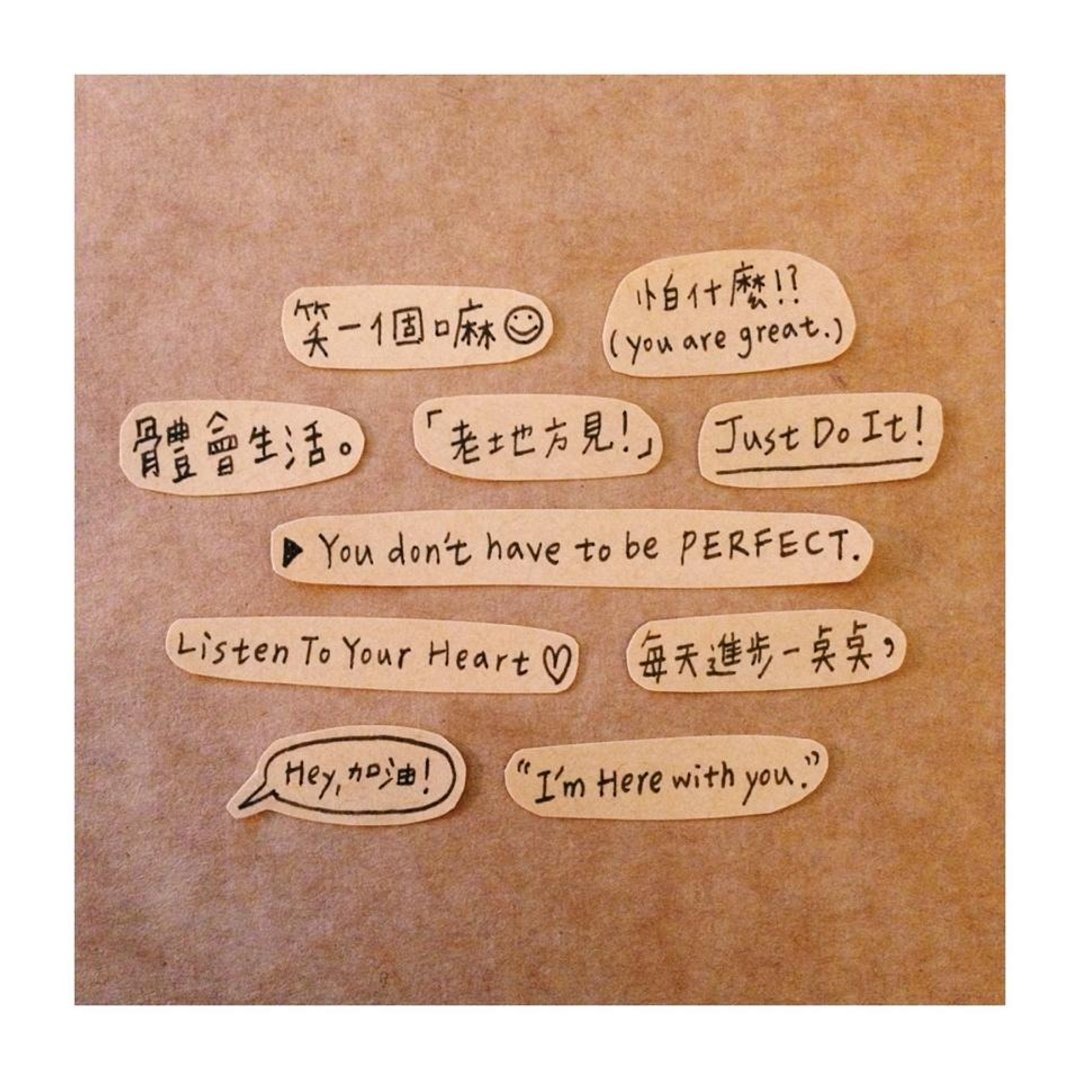 笑一個嘛☺
怕什麼!?
(you are great.)
體會生活。
「老地方見!」
Just Do It!
▶ You don't have to be PERFECT.
Listen To Your Heart♡
每天進步一桌桌,
Hey,加油!
"I'm Here with you."